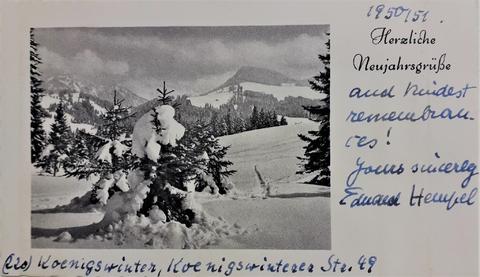 1950/51.
Herzliche
Neujahrsgrüße
and kindest
remembran-
ces!
Yours sincerely
Eduard Hempel
(22c) Koenigswinter, Koenigswinterer Str. 49